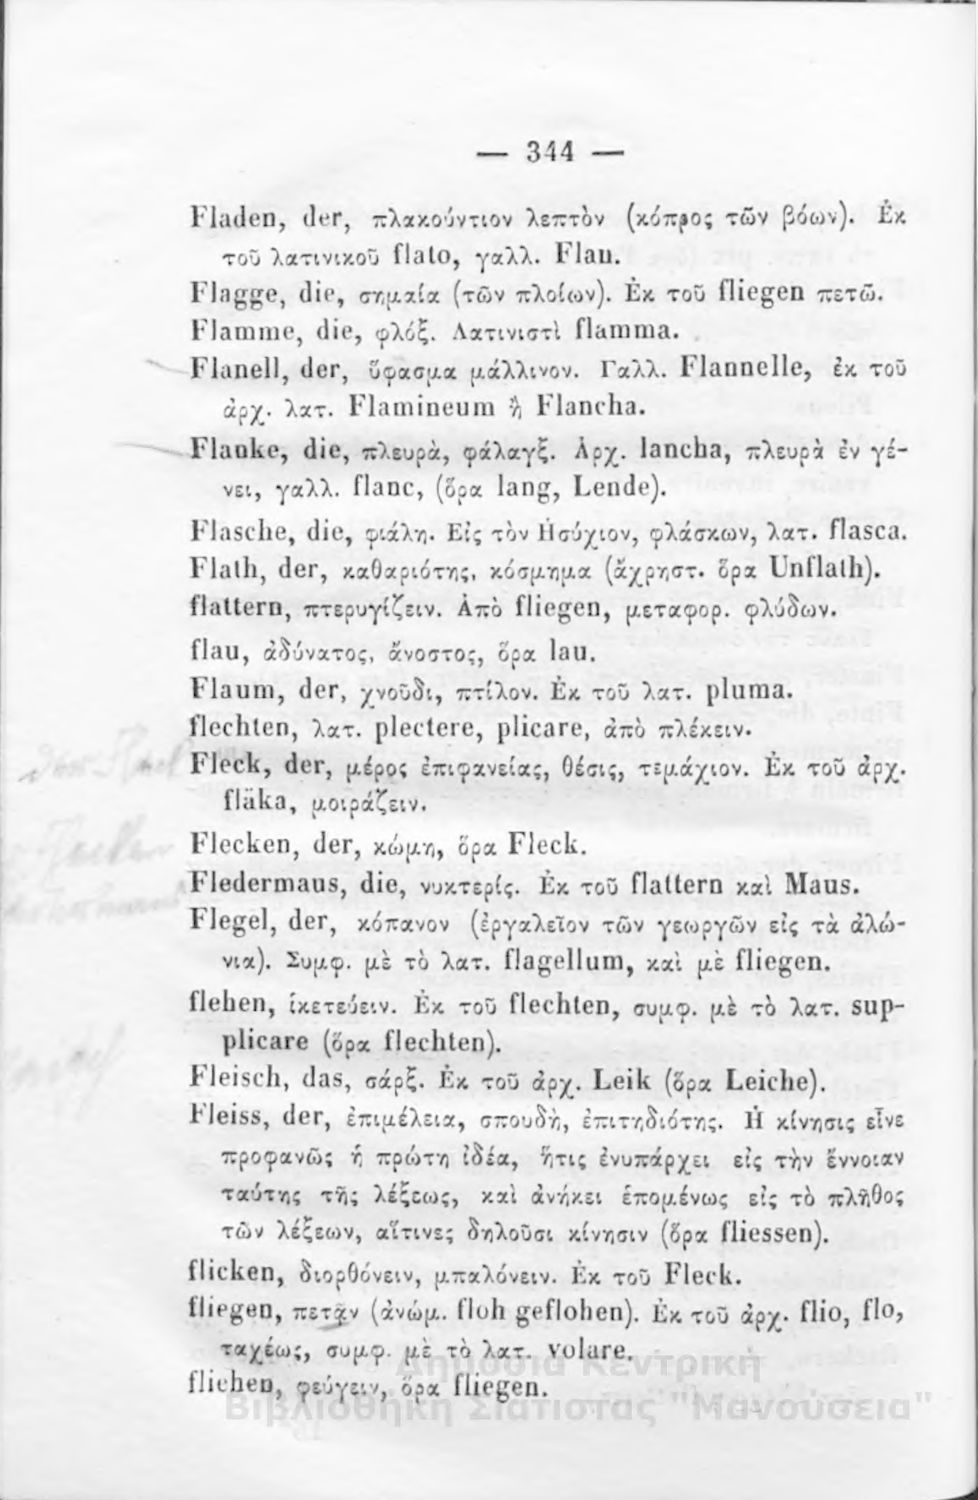 — 344 —
Fladen, der, πλακούντιον λεπτὸν (κόπρος τῶν βόων). Ἐκ
τοῦ λατινικοῦ flato, γαλλ. Flan.
Flagge, die, σημαία (τῶν πλοίων). Ἐκ τοῦ fliegen πετῶ.
Flamme, die, φλόξ. Λατινιστὶ flamma.
Flanell, der, ὕφασμα μάλλινον. Γαλλ. Flannelle, ἐκ τοῦ
ἀρχ. λατ. Flamineum ἢ Flancha.
Flanke, die, πλευρὰ, φάλαγξ. Ἀρχ. lancha, πλευρὰ ἐν γέ-
νει, γαλλ. flanc, (ὅρα lang, Lende).
Flasche, die, φιάλη. Εἰς τὸν Ἡσύχιον, φλάσκων, λατ. flasca.
Flath, der, καθαριότης, κόσμημα (ἄχρηστ. ὅρα Unflath).
flattern, πτερυγίζειν. Ἀπὸ fliegen, μεταφορ. φλύδων.
flau, ἀδύνατος, ἄνοστος, ὅρα lau.
Flaum, der, χνοῦδι, πτίλον. Ἐκ τοῦ λατ. pluma.
flechten, λατ. plectere, plicare, ἀπὸ πλέκειν.
Fleck, der, μέρος ἐπιφανείας, θέσις, τεμάχιον. Ἐκ τοῦ ἀρχ.
fläka, μοιράζειν.
Flecken, der, κώμη, ὅρα Fleck.
Fledermaus, die, νυκτερίς. Ἐκ τοῦ flattern καὶ Maus.
Flegel, der, κόπανον (ἐργαλεῖον τῶν γεωργῶν εἰς τὰ ἀλώ-
νια). Συμφ. μὲ τὸ λατ. flagellum, καὶ μὲ fliegen.
flehen, ἱκετεύειν. Ἐκ τοῦ flechten, συμφ. μὲ τὸ λατ. sup-
plicare (ὅρα flechten).
Fleisch, das, σάρξ. Ἐκ τοῦ ἀρχ. Leik (ὅρα Leiche).
Fleiss, der, ἐπιμέλεια, σπουδὴ, ἐπιτηδιότης. Ἡ κίνησις εἶνε
προφανῶς ἡ πρώτη ἰδέα, ἥτις ἐνυπάρχει εἰς τὴν ἔννοιαν
ταύτης τῆς λέξεως, καὶ ἀνήκει ἑπομένως εἰς τὸ πλῆθος
τῶν λέξεων, αἵτινες δηλοῦσι κίνησιν (ὅρα fliessen).
flicken, διορθόνειν, μπαλόνειν. Ἐκ τοῦ Fleck.
fliegen, πετᾷν (ἀνώμ. floh geflohen). Ἐκ τοῦ ἀρχ. flio, flo,
ταχέως, συμφ. μὲ τὸ λατ. volare.
fliehen, φεύγειν, ὅρα fliegen.
Δημόσια Κεντρική
Βιβλιοθήκη Σιάτιστας "Μανούσεια"